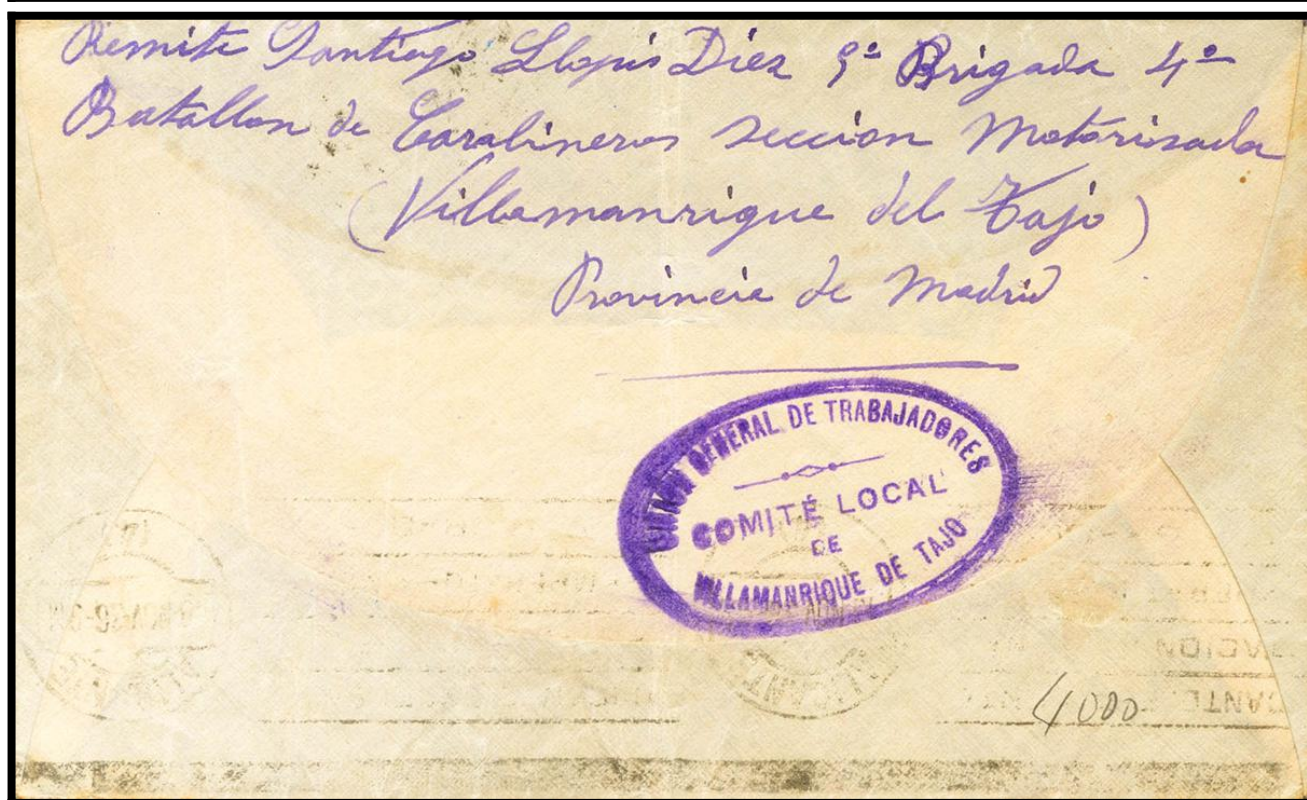 Remite Santiago Llopis Diez 9ª Brigada 4º
Batallon de Carabineros seccion Motorizada
(Villamanrique del Tajo)
Provincia de Madrid
UNION GENERAL DE TRABAJADORES
COMITÉ LOCAL
DE
VILLAMANRIQUE DE TAJO
4000